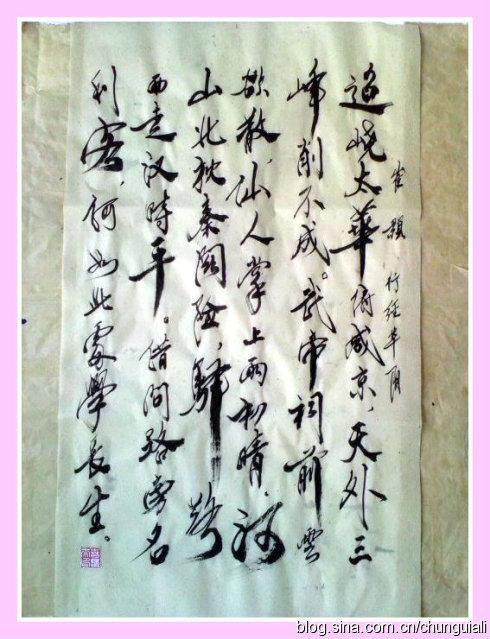 崔顥 行经华阴
迢峣太華俯咸京，天外三
峰削不成。武帝祠前雲
欲散，仙人掌上雨初晴，河
山北枕秦關險，驿路
西连汉時平。借问路旁名
利客，何如此處學长生。
blog.sina.com.cn/chunguiali